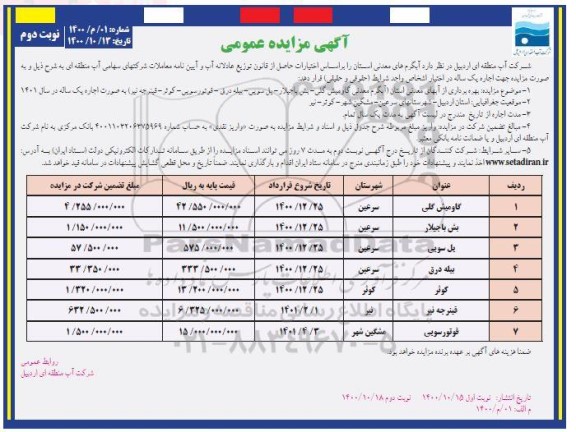 شماره: ۱۴۰۰/م/۰۱
تاریخ: ۱۴۰۰/۱۰/۱۲
نوبت دوم
آگهی مزایده عمومی
شرکت آب منطقه ای اردبیل در نظر دارد آبگرم های معدنی استان را براساس اختیارات حاصل از قانون توزیع عادلانه آب و آیین نامه معاملات شرکتهای سهامی آب منطقه ای به شرح ذیل و به
صورت مزایده جهت اجاره یک ساله در اختیار اشخاص واجد شرایط (حقوقی و حقیقی) قرار دهد:
۱-موضوع مزایده: بهره برداری از آبهای معدنی استان (آبگرم معدنی گاومیش گلی- بش باجیلار- یل سویی- بیله درق -قوتورسویی- کوثر- قینرجه نیر) به صورت اجاره یک ساله در سال ۱۴۰۱
۲-موقعیت جغرافیایی: استان اردبیل- شهرستانهای سرعین- مشگین شهر- کوثر- نیر
۳-مدت اجاره از تاریخ مندرج در لیست آگهی به مدت یک سال تمام.
۴-مبالغ تضمین شرکت در مزایده: واریز مبلغ مربوطه شرح جدول ذیل و اسناد و شرایط مزایده به صورت «واریز نقدی» به حساب شماره ۴۰۰۱۱۰۲۲۰۶۳۷۵۹۶۹ بانک مرکزی به نام شرکت
آب منطقه ای اردبیل و یا ضمانت نامه بانکی معتبر
۵-سایر شرایط: شرکت کنندگان از تاریخ درج آگهی نوبت دوم به مدت ۷ روز می توانند اسناد مزایده را از طریق سامانه تدارکات الکترونیکی دولت (ستاد ایران) به آدرس:
www.setadiran.ir اخذ نمایند و پیشنهادات خود را طبق زمانبندی مندرج در سامانه ستاد ایران اقدام و بارگذاری نمایند. ضمنا تاریخ و محل قطعی گشایش پیشنهادات در سامانه قید خواهد شد.
ردیف عنوان شهرستان تاریخ شروع قرارداد قیمت پایه به ریال مبلغ تضمین شرکت در مزایده
۱ گاومیش گلی سرعین ۱۴۰۰/۱۲/۲۵ ۴۲/۵۵۰/۰۰۰/۰۰۰ ۴/۲۵۵/۰۰۰/۰۰۰
۲ بش باجیلار سرعین ۱۴۰۰/۱۲/۲۵ ۱۱/۵۰۰/۰۰۰/۰۰۰ ۱/۱۵۰/۰۰۰/۰۰۰
۳ یل سویی سرعین ۱۴۰۰/۱۲/۲۵ ۵۷۵/۰۰۰/۰۰۰ ۵۷/۵۰۰/۰۰۰
۴ بیله درق سرعین ۱۴۰۰/۱۲/۲۵ ۳۳۳/۵۰۰/۰۰۰ ۳۳/۳۵۰/۰۰۰
۵ کوثر کوثر ۱۴۰۰/۱۲/۲۵ ۱۳/۲۰۰/۰۰۰/۰۰۰ ۱/۳۲۰/۰۰۰/۰۰۰
۶ قینرجه نیر نیر ۱۴۰۱/۲/۱ ۶/۳۲۵/۰۰۰/۰۰۰ ۶۳۲/۵۰۰/۰۰۰
۷ قوتورسویی مشگین شهر ۱۴۰۱/۴/۳ ۱۵/۰۰۰/۰۰۰/۰۰۰ ۱/۵۰۰/۰۰۰/۰۰۰
ضمنا هزینه های آگهی بر عهده برنده مزایده خواهد بود.
روابط عمومی
شرکت آب منطقه ای اردبیل
تاریخ انتشار: نوبت اول ۱۴۰۰/۱۰/۱۵ نوبت دوم ۱۴۰۰/۱۰/۱۸
م الف: ۱۴۰۰/م/۰۱
ParsNamadData
۰۲۱-۸۸۳۴۹۶۷۰-۵